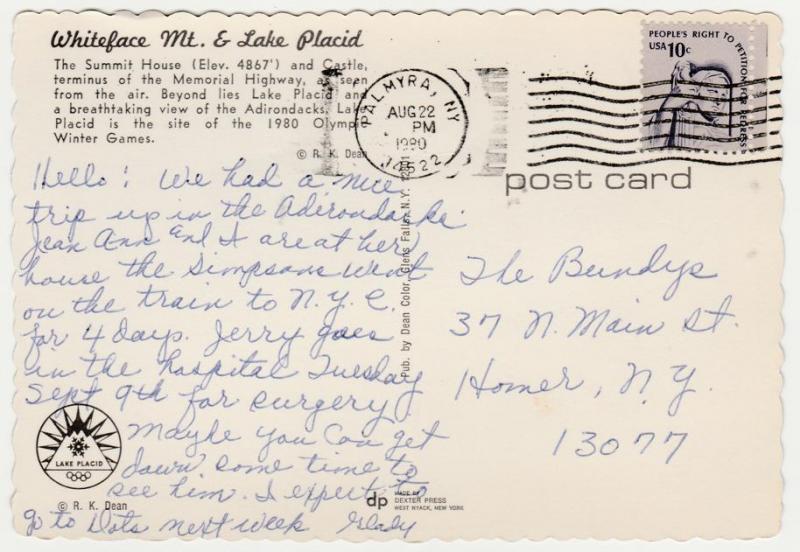 Whiteface Mt. & Lake Placid
The Summit House (Elev. 4867') and Castle,
terminus of the Memorial Highway, as seen
from the air. Beyond lies Lake Placid and
a breathtaking view of the Adirondacks. Lake
Placid is the site of the 1980 Olympic
Winter Games.
© R. K. Dean
PALMYRA, NY
AUG 22
PM
1980
14522
PEOPLE'S RIGHT TO PETITION FOR REDRESS
USA 10c
post card
Hello! We had a nice
trip up in the Adirondacks.
Jean Ann and I are at her
house the Simpsons went
on the train to N.Y.C.
for 4 days. Jerry goes
in the hospital Tuesday
Sept 9th for surgery
Maybe you can get
down some time to
see him. I expect to
go to Dots next week Glady
The Bundys
37 N. Main St.
Homer, N.Y.
13077
Pub. by Dean Color, Glens Falls, N.Y. 12801
LAKE PLACID
© R. K. Dean
dp
MADE BY
DEXTER PRESS
WEST NYACK, NEW YORK